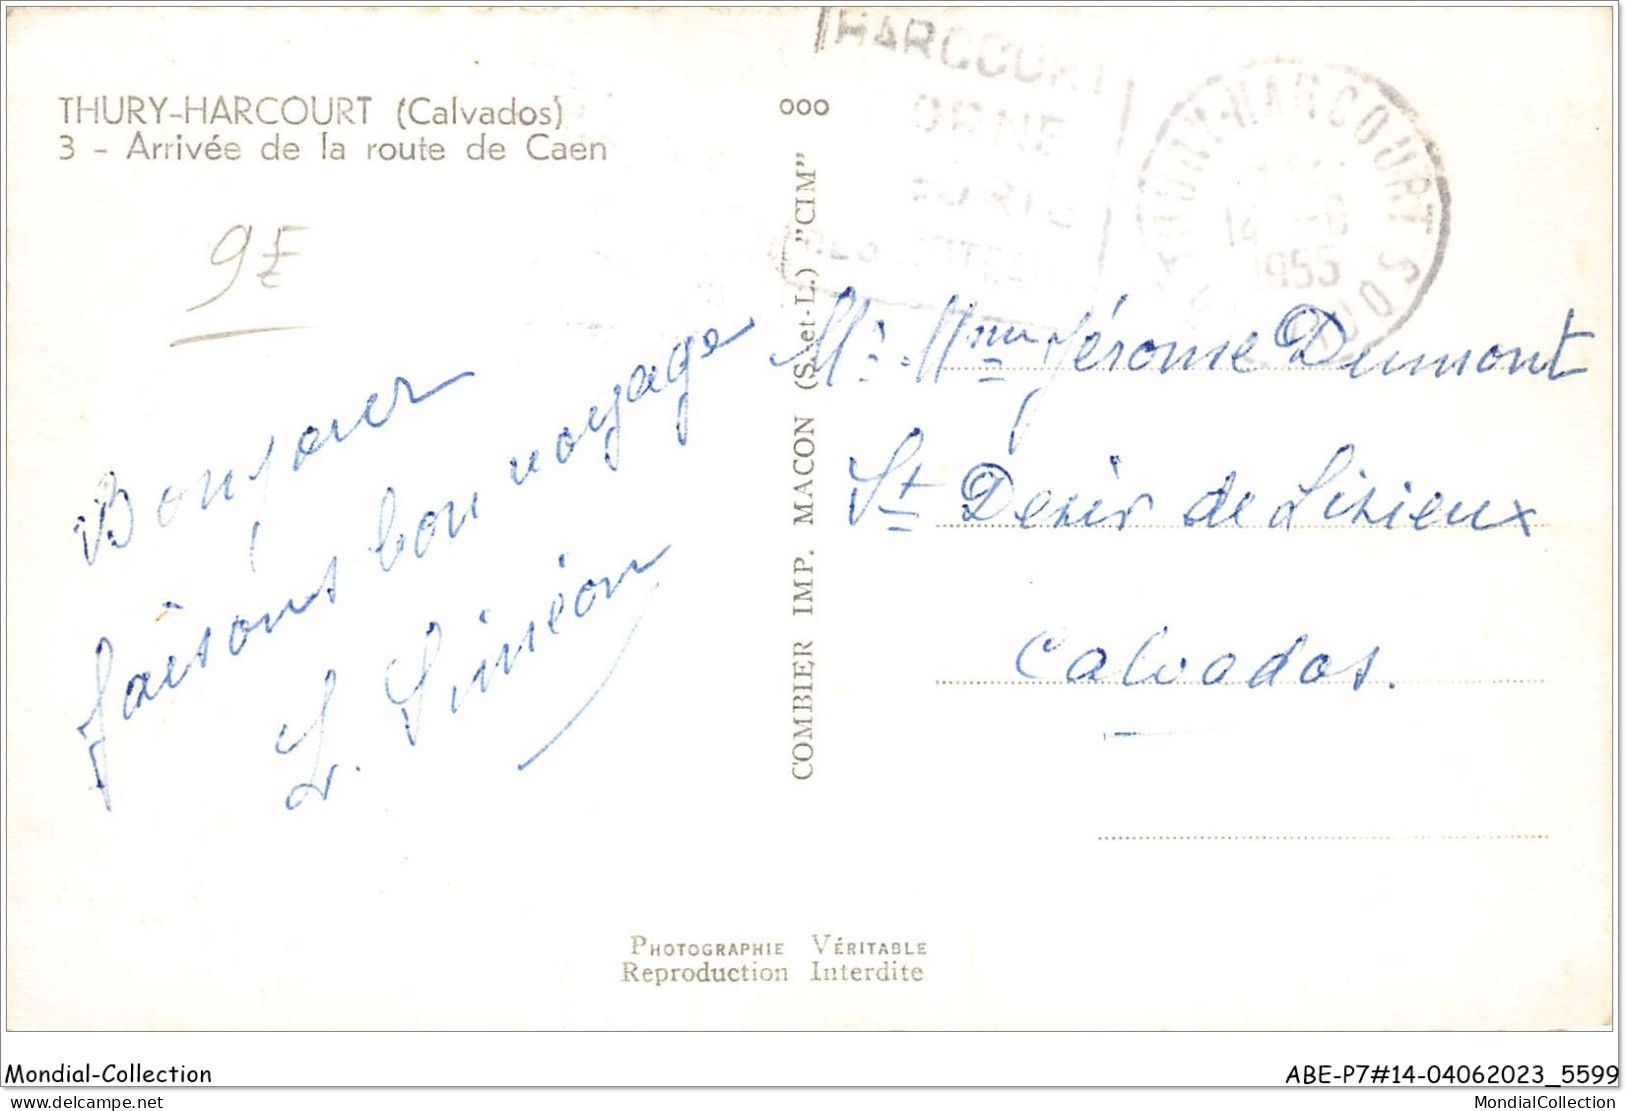 THURY-HARCOURT (Calvados)
3 - Arrivée de la route de Caen
9€
Bonjour
faisons bon voyage
L. Siméon
COMBIER IMP. MACON (S.-et-L.) "CIM"
000
HARCOURT
ORNE
THURY-HARCOURT
1955
CALVADOS
Mr. Mme Jérome Dumont
St Desir de Lisieux
Calvados.
PHOTOGRAPHIE VÉRITABLE
Reproduction Interdite
Mondial-Collection
ABE-P7#14-04062023_5599
www.delcampe.net
MondialCollection